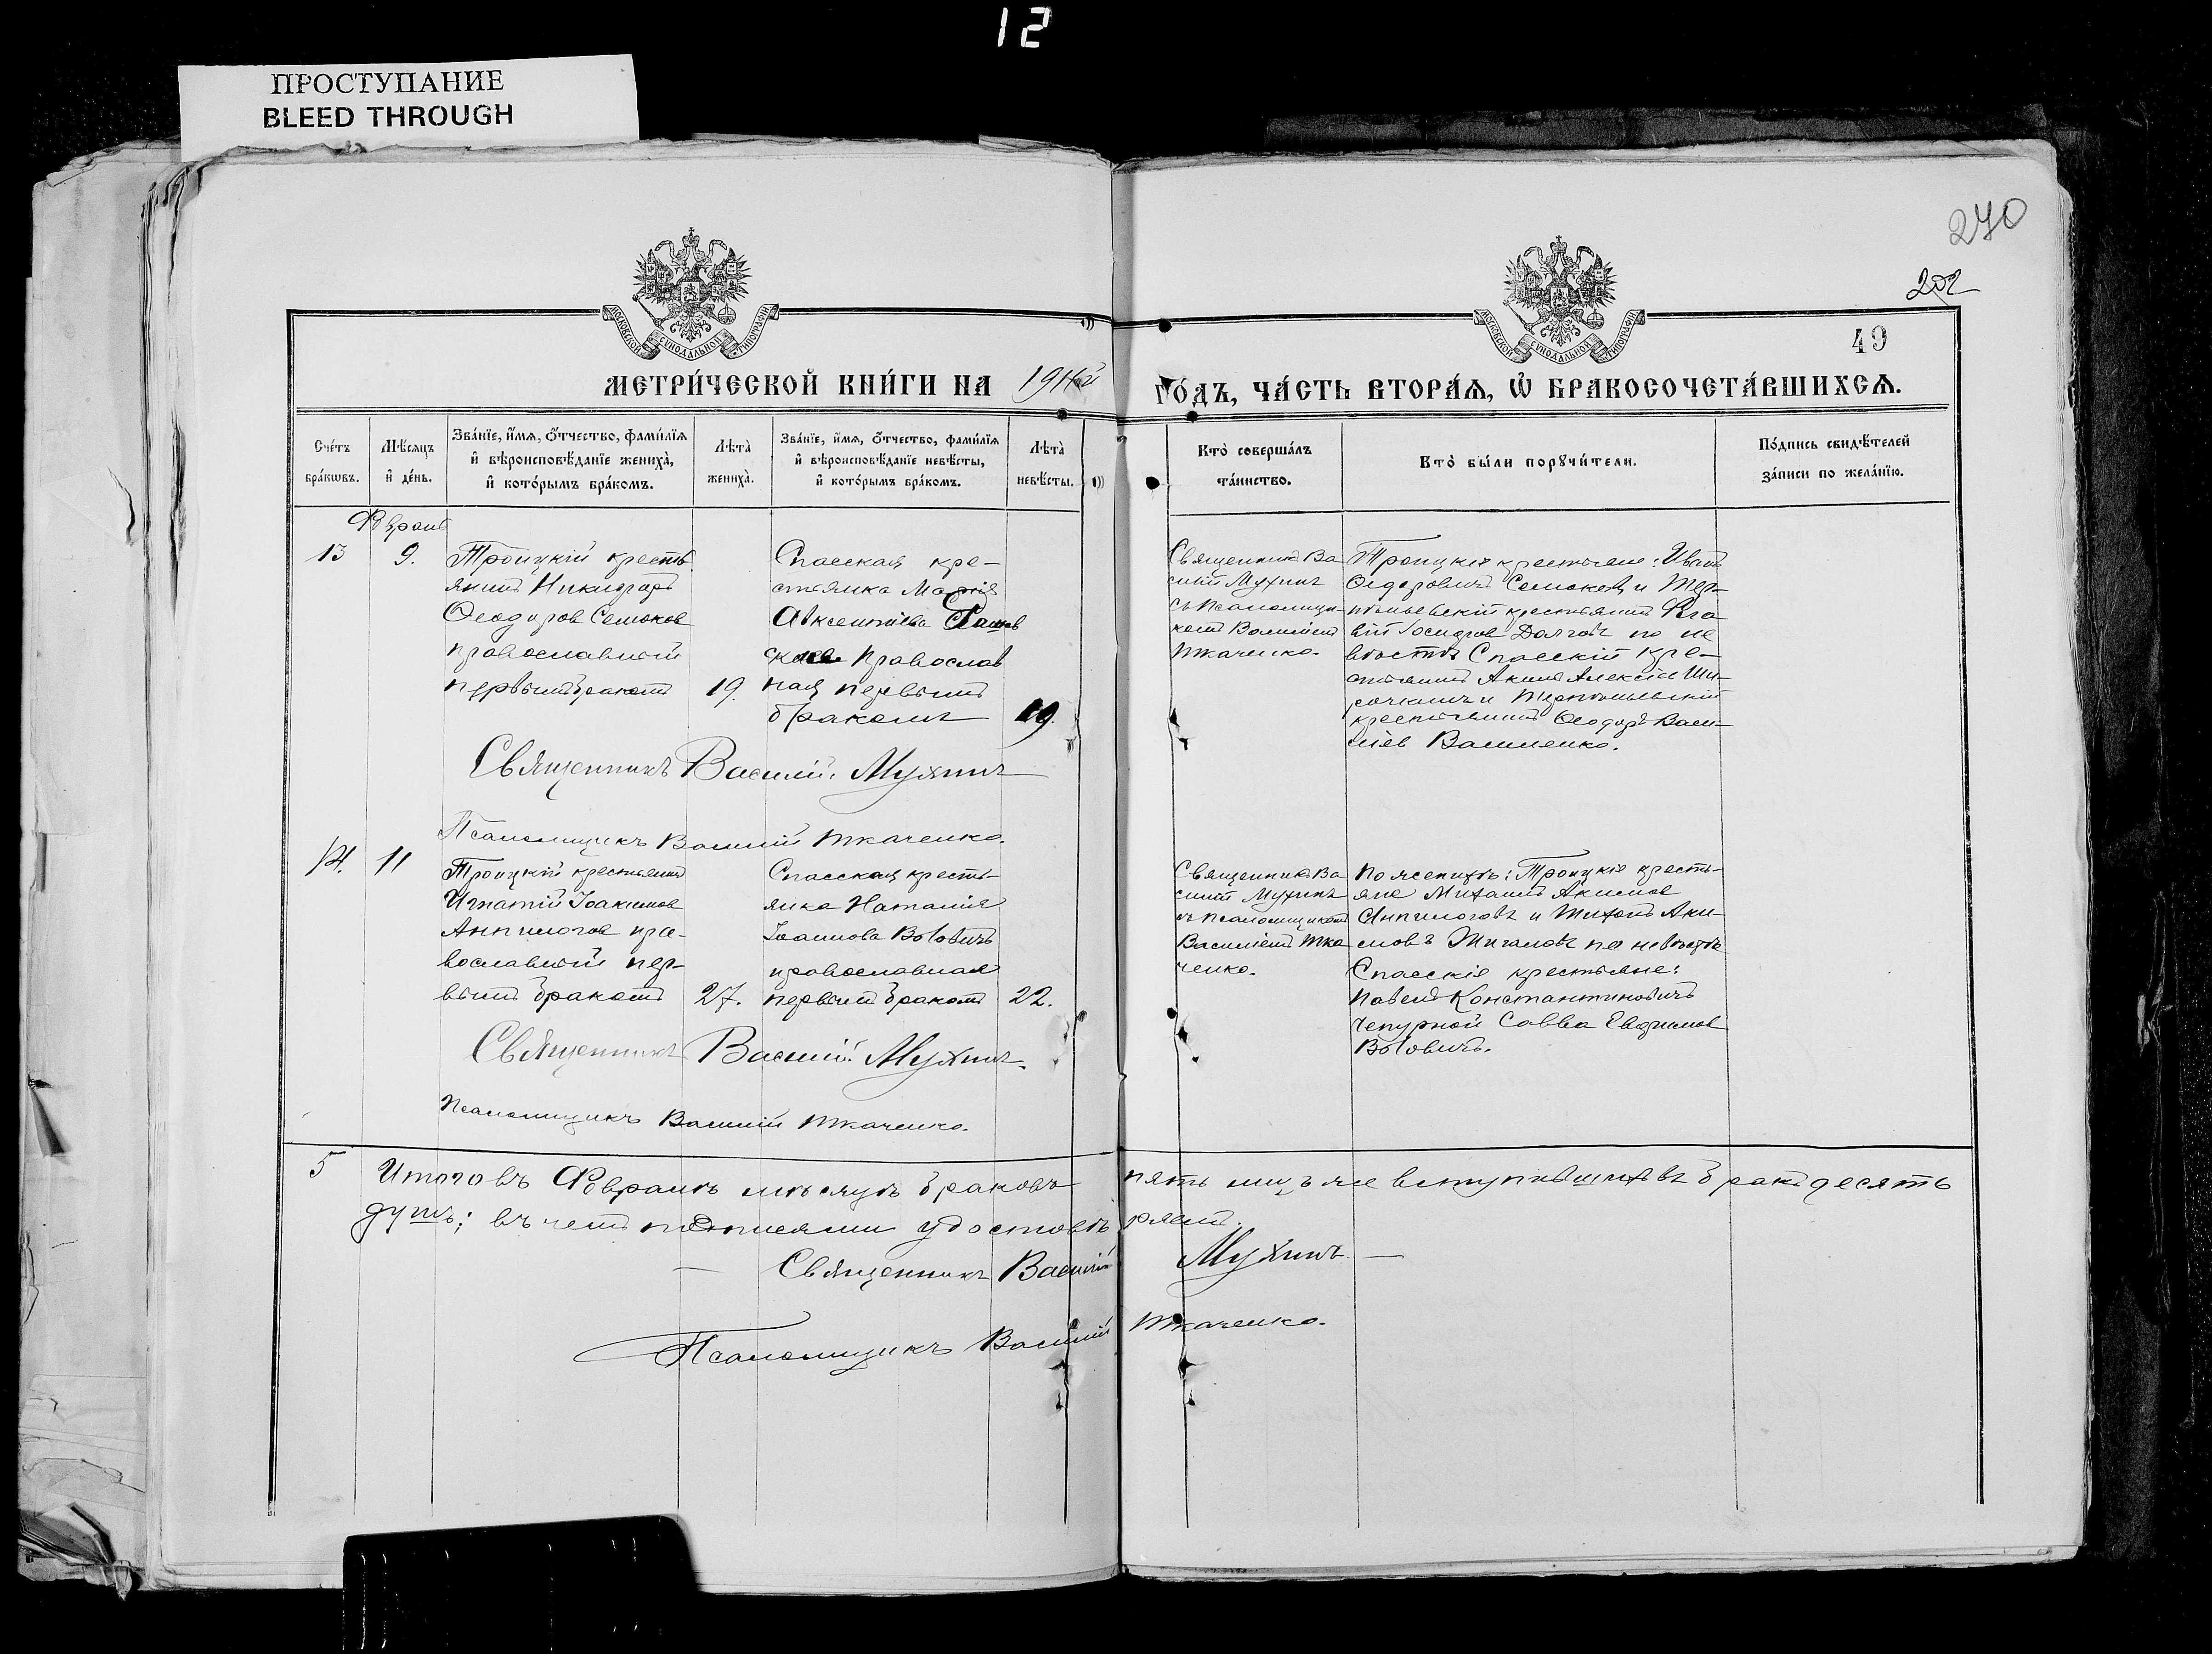 12
ПРОСТУПАНИЕ
BLEED THROUGH
270
202
МОСКОВСКОЙ СѴНОДАЛЬНОЙ ТИПОГРАФІИ
МОСКОВСКОЙ СѴНОДАЛЬНОЙ ТИПОГРАФІИ
49
МЕТРИ́ЧЕСКОЙ КНИ́ГИ НА 1914й ГО́ДЪ, ЧА́СТЬ ВТОРА́Я, Ѽ БРАКОСОЧЕТА́ВШИХСЯ.
Сче́тъ
бра́кѡвъ.
Мѣ́сяцъ
и҆ де́нь.
Зва́нїе, и҆́мя, о҆́тчество, фами́лїя
и҆ вѣроисповѣ́данїе жениха̀,
и҆ кото́рымъ бра́комъ.
Лѣта̀
жениха̀.
Зва́нїе, и҆́мя, о҆́тчество, фами́лїя
и҆ вѣроисповѣ́данїе невѣ́сты,
и҆ кото́рымъ бра́комъ.
Лѣта̀
невѣ́сты.
Кто̀ соверша́лъ
та́инство.
Кто̀ бы́ли порꙋчи́тели.
По́дпись свидѣ́телей
за́писи по жела́нїю.
Февраль
13
9.
Троицкій кресть
янинъ Никифоръ
Ѳеодоров Семоков
православный
первымъ бракомъ
19.
Спасская кре-
стьянка Марія
Авксентіева
Православ
ная первымъ
бракомъ
19.
Священникъ Ва
силій Мухинъ
съ псаломщи-
комъ Василіемъ
Ткаченко.
Троицкіе крестьяне: Иванъ
Ѳедоровичъ Семоков и Тер-
крестьянинъ
Іосифов Долговъ по не
вѣстѣ Спасскій кре-
стьянинъ Акимъ Алексіев
и
крестьянинъ Ѳеодоръ Васи-
ліев Василенко.
Священникъ Василій Мухинъ
Псаломщикъ Василій Ткаченко.
14.
11
Троицкій крестьянинъ
Игнатій Іоакимов
Анпилогов пра-
вославный пер-
вымъ бракомъ
27.
Спасская кресть-
янка Наталія
Іоаннова Воловичъ
православная
первымъ бракомъ
22.
Священникъ Ва
силій Мухинъ
съ псаломщикомъ
Василіемъ Тка
ченко.
По женихѣ: Троицкіе кресть-
яне Михаилъ Акимов
Анпилоговъ и Тихонъ Аки-
мовъ Жигаловъ по невѣстѣ
Спасскіе крестьяне:
Павелъ Константиновичъ
Чепурной Савва Евфимов
Воловичъ.
Священникъ Василій Мухинъ.
Псаломщикъ Василій Ткаченко.
5
Итого въ Февралѣ мѣсяцѣ браковъ пять лицъ же вступившихъ въ бракъ десять
душъ; въ чемъ подписями удостовѣряемъ.
Священникъ Василій Мухинъ
Псаломщикъ Василій Ткаченко.